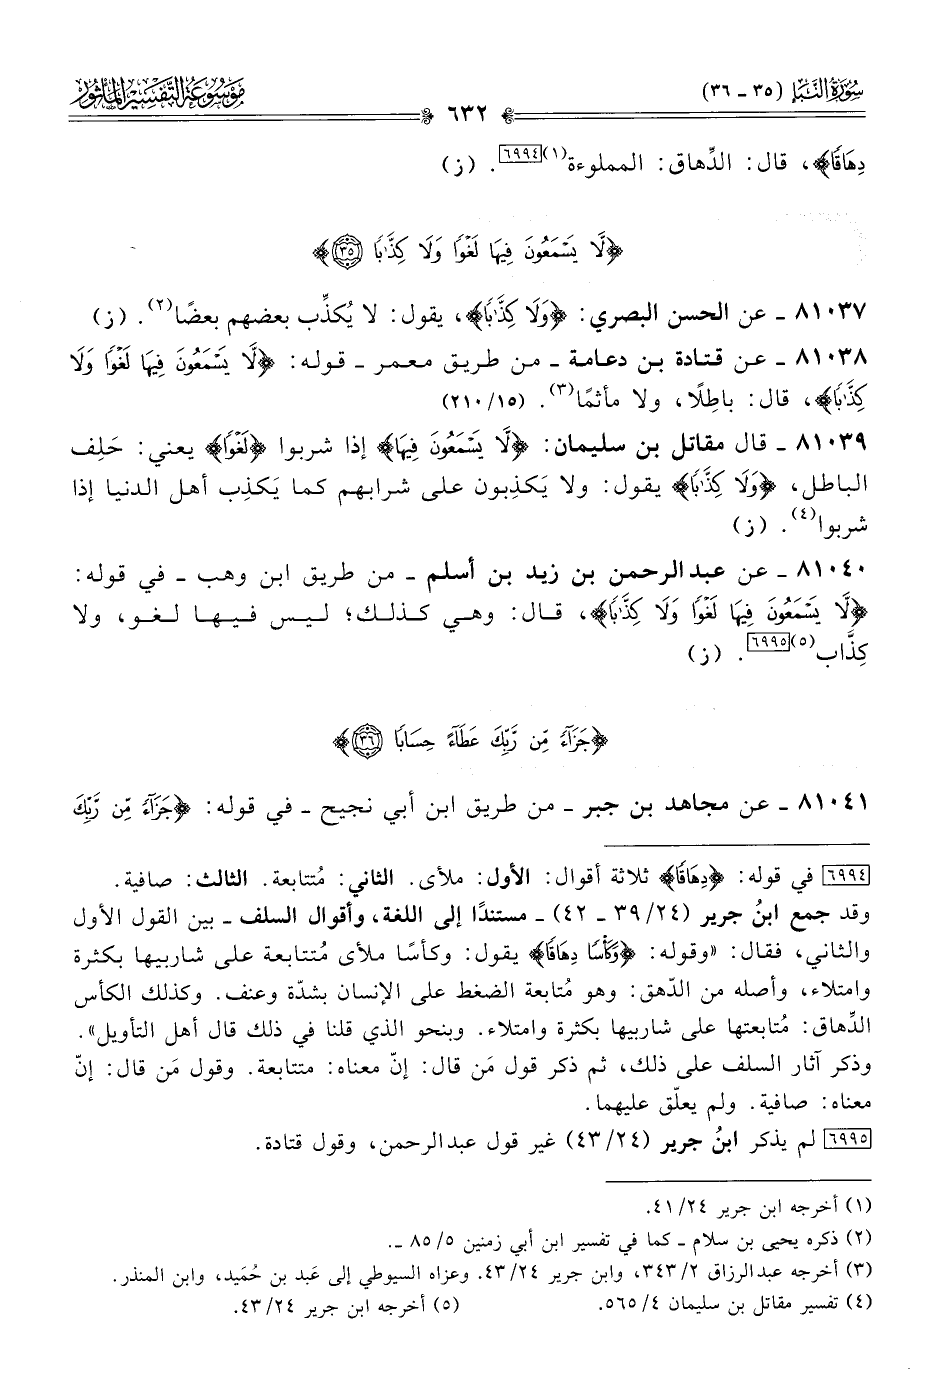 سُورَةُ النَّبَإِ (٣٥ - ٣٦)
٦٣٢
مَوْسُوعَة التَّفْسِيْرِ المَأْثُور
دِهَاقًا﴾، قال: الدِّهاق: المملوءة(١)[٦٩٩٤]. (ز)
﴿لَّا يَسْمَعُونَ فِيهَا لَغْوًا وَلَا كِذَّٰبًا ٣٥﴾
٨١٠٣٧ - عن الحسن البصري: ﴿وَلَا كِذَّٰبًا﴾، يقول: لا يُكذِّب بعضهم بعضًا(٢). (ز)
٨١٠٣٨ - عن قتادة بن دعامة - من طريق معمر - قوله: ﴿لَّا يَسْمَعُونَ فِيهَا لَغْوًا وَلَا
كِذَّٰبًا﴾، قال: باطِلًا، ولا مأثمًا(٣). (١٥/ ٢١٠)
٨١٠٣٩ - قال مقاتل بن سليمان: ﴿لَّا يَسْمَعُونَ فِيهَا﴾ إذا شربوا ﴿لَغْوًا﴾ يعني: حَلِف
الباطل، ﴿وَلَا كِذَّٰبًا﴾ يقول: ولا يَكذِبون على شرابهم كما يَكذِب أهل الدنيا إذا
شربوا(٤). (ز)
٨١٠٤٠ - عن عبدالرحمن بن زيد بن أسلم - من طريق ابن وهب - في قوله:
﴿لَّا يَسْمَعُونَ فِيهَا لَغْوًا وَلَا كِذَّٰبًا﴾، قال: وهي كذلك؛ ليس فيها لغو، ولا
كِذَّاب(٥)[٦٩٩٥]. (ز)
﴿جَزَآءً مِّن رَّبِّكَ عَطَآءً حِسَابًا ٣٦﴾
٨١٠٤١ - عن مجاهد بن جبر - من طريق ابن أبي نجيح - في قوله: ﴿جَزَآءً مِّن رَّبِّكَ
[٦٩٩٤] في قوله: ﴿دِهَاقًا﴾ ثلاثة أقوال: الأول: ملأى. الثاني: مُتتابعة. الثالث: صافية.
وقد جمع ابنُ جرير (٢٤/ ٣٩ - ٤٢) - مستندًا إلى اللغة، وأقوال السلف - بين القول الأول
والثاني، فقال: «وقوله: ﴿وَكَأْسًا دِهَاقًا﴾ يقول: وكأسًا ملأى مُتتابعة على شاربيها بكثرة
وامتلاء، وأصله من الدّهق: وهو مُتابعة الضغط على الإنسان بشدّة وعنف. وكذلك الكأس
الدِّهاق: مُتابعتها على شاربيها بكثرة وامتلاء. وبنحو الذي قلنا في ذلك قال أهل التأويل».
وذكر آثار السلف على ذلك، ثم ذكر قول مَن قال: إنّ معناه: متتابعة. وقول مَن قال: إنّ
معناه: صافية. ولم يعلّق عليهما.
[٦٩٩٥] لم يذكر ابنُ جرير (٢٤/ ٤٣) غير قول عبدالرحمن، وقول قتادة.
(١) أخرجه ابن جرير ٢٤/ ٤١.
(٢) ذكره يحيى بن سلام - كما في تفسير ابن أبي زمنين ٥/ ٨٥ -.
(٣) أخرجه عبدالرزاق ٢/ ٣٤٣، وابن جرير ٢٤/ ٤٣. وعزاه السيوطي إلى عَبد بن حُمَيد، وابن المنذر.
(٤) تفسير مقاتل بن سليمان ٤/ ٥٦٥. (٥) أخرجه ابن جرير ٢٤/ ٤٣.